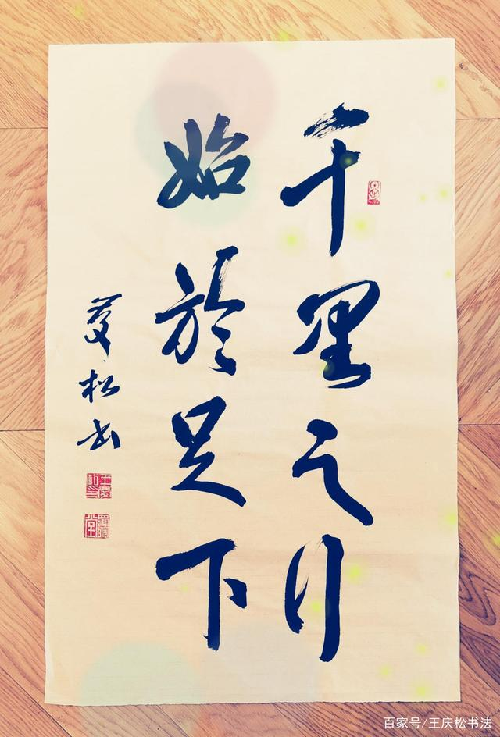 千里之行
始於足下
慶松书
百家号/王庆松书法